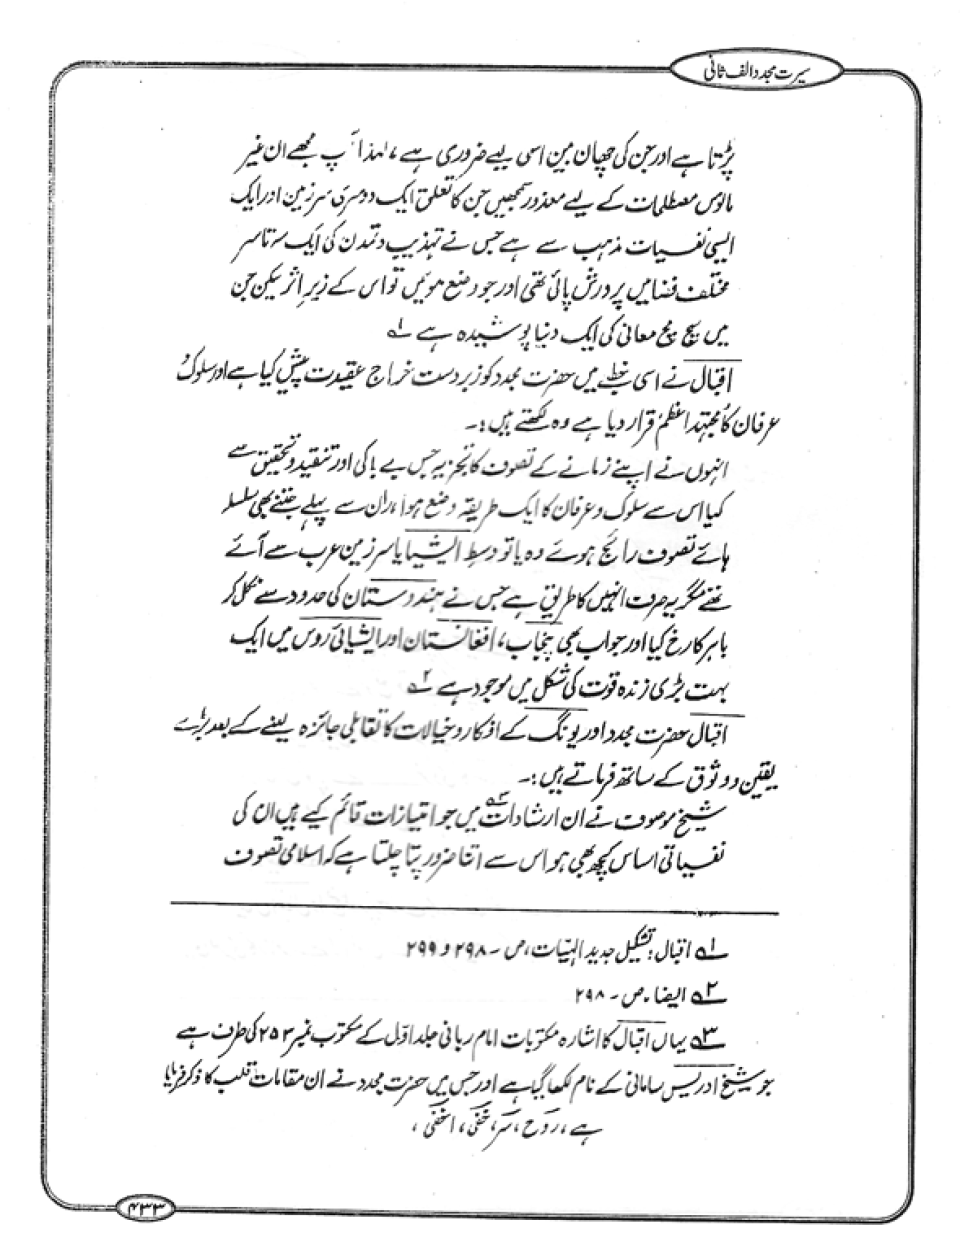 سیرت مجدد الف ثانی
پڑتا ہے اور جن کی چھان بین اسی لیے ضروری ہے، لہٰذا آپ مجھے ان غیر
مانوس مصطلحات کے لیے معذور سمجھیں جن کا تعلق ایک دوسری سرزمین اور ایک
ایسی نفسیات مذہب سے ہے جس نے تہذیب و تمدن کی ایک سرتاسر
مختلف فضا میں پرورش پائی تھی اور جو وضع ہوئیں تو اس کے زیرِ اثر لیکن جن
میں سچ مچ معانی کی ایک دنیا پوشیدہ ہے ۱؎
اقبال نے اسی خطبے میں حضرت مجدد کو زبردست خراج عقیدت پیش کیا ہے اور سلوک و
عرفان کا مجتہد اعظم قرار دیا ہے وہ لکھتے ہیں :۔
انہوں نے اپنے زمانے کے تصوف کا تجزیہ جس بے باکی اور تنقید و تحقیق سے
کیا اس سے سلوک و عرفان کا ایک طریقہ وضع ہوا، ان سے پہلے جتنے بھی سلسلہ
ہائے تصوف رائج ہوئے وہ یا تو وسط ایشیا یا سرزمین عرب سے آئے
تھے مگر یہ صرف انہیں کا طریق ہے جس نے ہندوستان کی حدود سے نکل کر
باہر کا رخ کیا اور جو اب بھی پنجاب، افغانستان اور ایشیائی روس میں ایک
بہت بڑی زندہ قوت کی شکل میں موجود ہے ۲؎
اقبال حضرت مجدد اور یونگ کے افکار و خیالات کا تقابلی جائزہ لینے کے بعد بڑے
یقین و وثوق کے ساتھ فرماتے ہیں :۔
شیخ موصوف نے ان ارشادات ۳؎ میں جو امتیازات قائم کیے ہیں ان کی
نفسیاتی اساس کچھ بھی ہو اس سے اتنا ضرور پتا چلتا ہے کہ اسلامی تصوف
۱؎ اقبال: تشکیل جدید الہیات، ص۔ ۲۹۸ و ۲۹۹
۲؎ ایضا، ص۔ ۲۹۸
۳؎ یہاں اقبال کا اشارہ مکتوبات امام ربانی جلد اوّل کے مکتوب نمبر ۲۵۳ کی طرف ہے
جو شیخ ادریس سامانی کے نام لکھا گیا ہے اور جس میں حضرت مجدد نے ان مقامات قلب کا ذکر فرمایا
ہے، روح، سر، خفی، اخفی،
۴۳۳